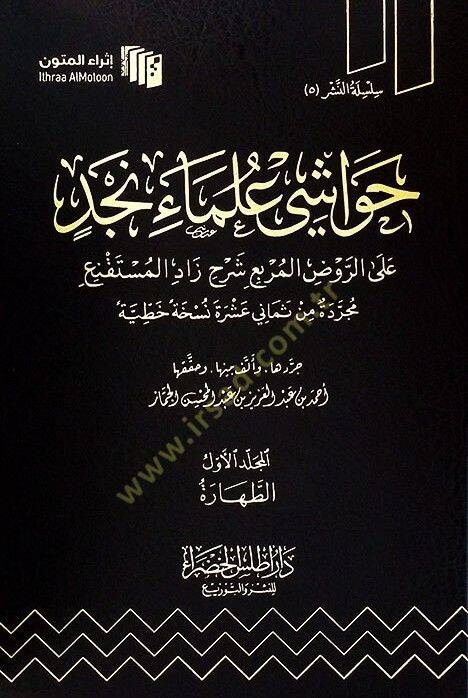 إثراء المتون
Ithraa AlMotoon
سِلْسِلَةُ النَّشْرِ (٥)
حَوَاشِي عُلَمَاءِ نَجْدٍ
عَلَى الرَّوْضِ المُرْبِعِ شَرْحِ زَادِ المُسْتَقْنِعِ
مُجَرَّدَةً مِنْ ثَمَانِي عَشْرَةَ نُسْخَةً خَطِّيَّةً
جرَّدها، وألَّف بينها، وحقَّقها
أحمد بن عبد العزيز بن عبد المحسن الجماز
www.irsad.com.tr
المُجَلَّدُ الأَوَّلُ
الطَّهَارَةُ
دار أطلس الخضراء
للنشر والتوزيع